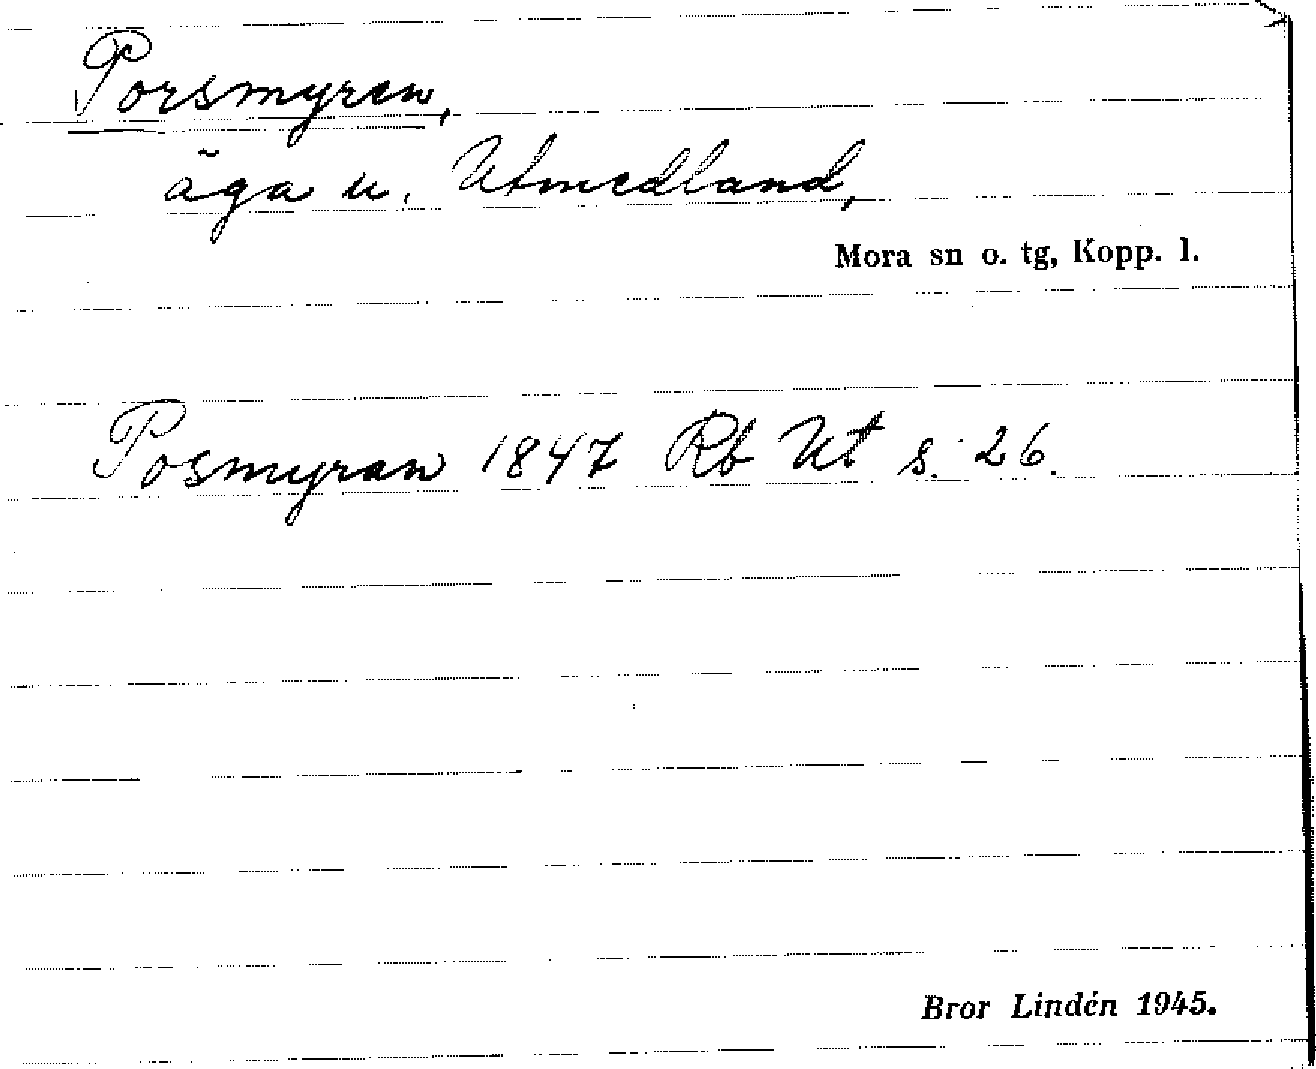 Porsmyren,
äga u. Utmedland,
Mora sn o. tg, Kopp. l.
Posmyran 1847 Rb Ut s. 26.
Bror Lindén 1945.